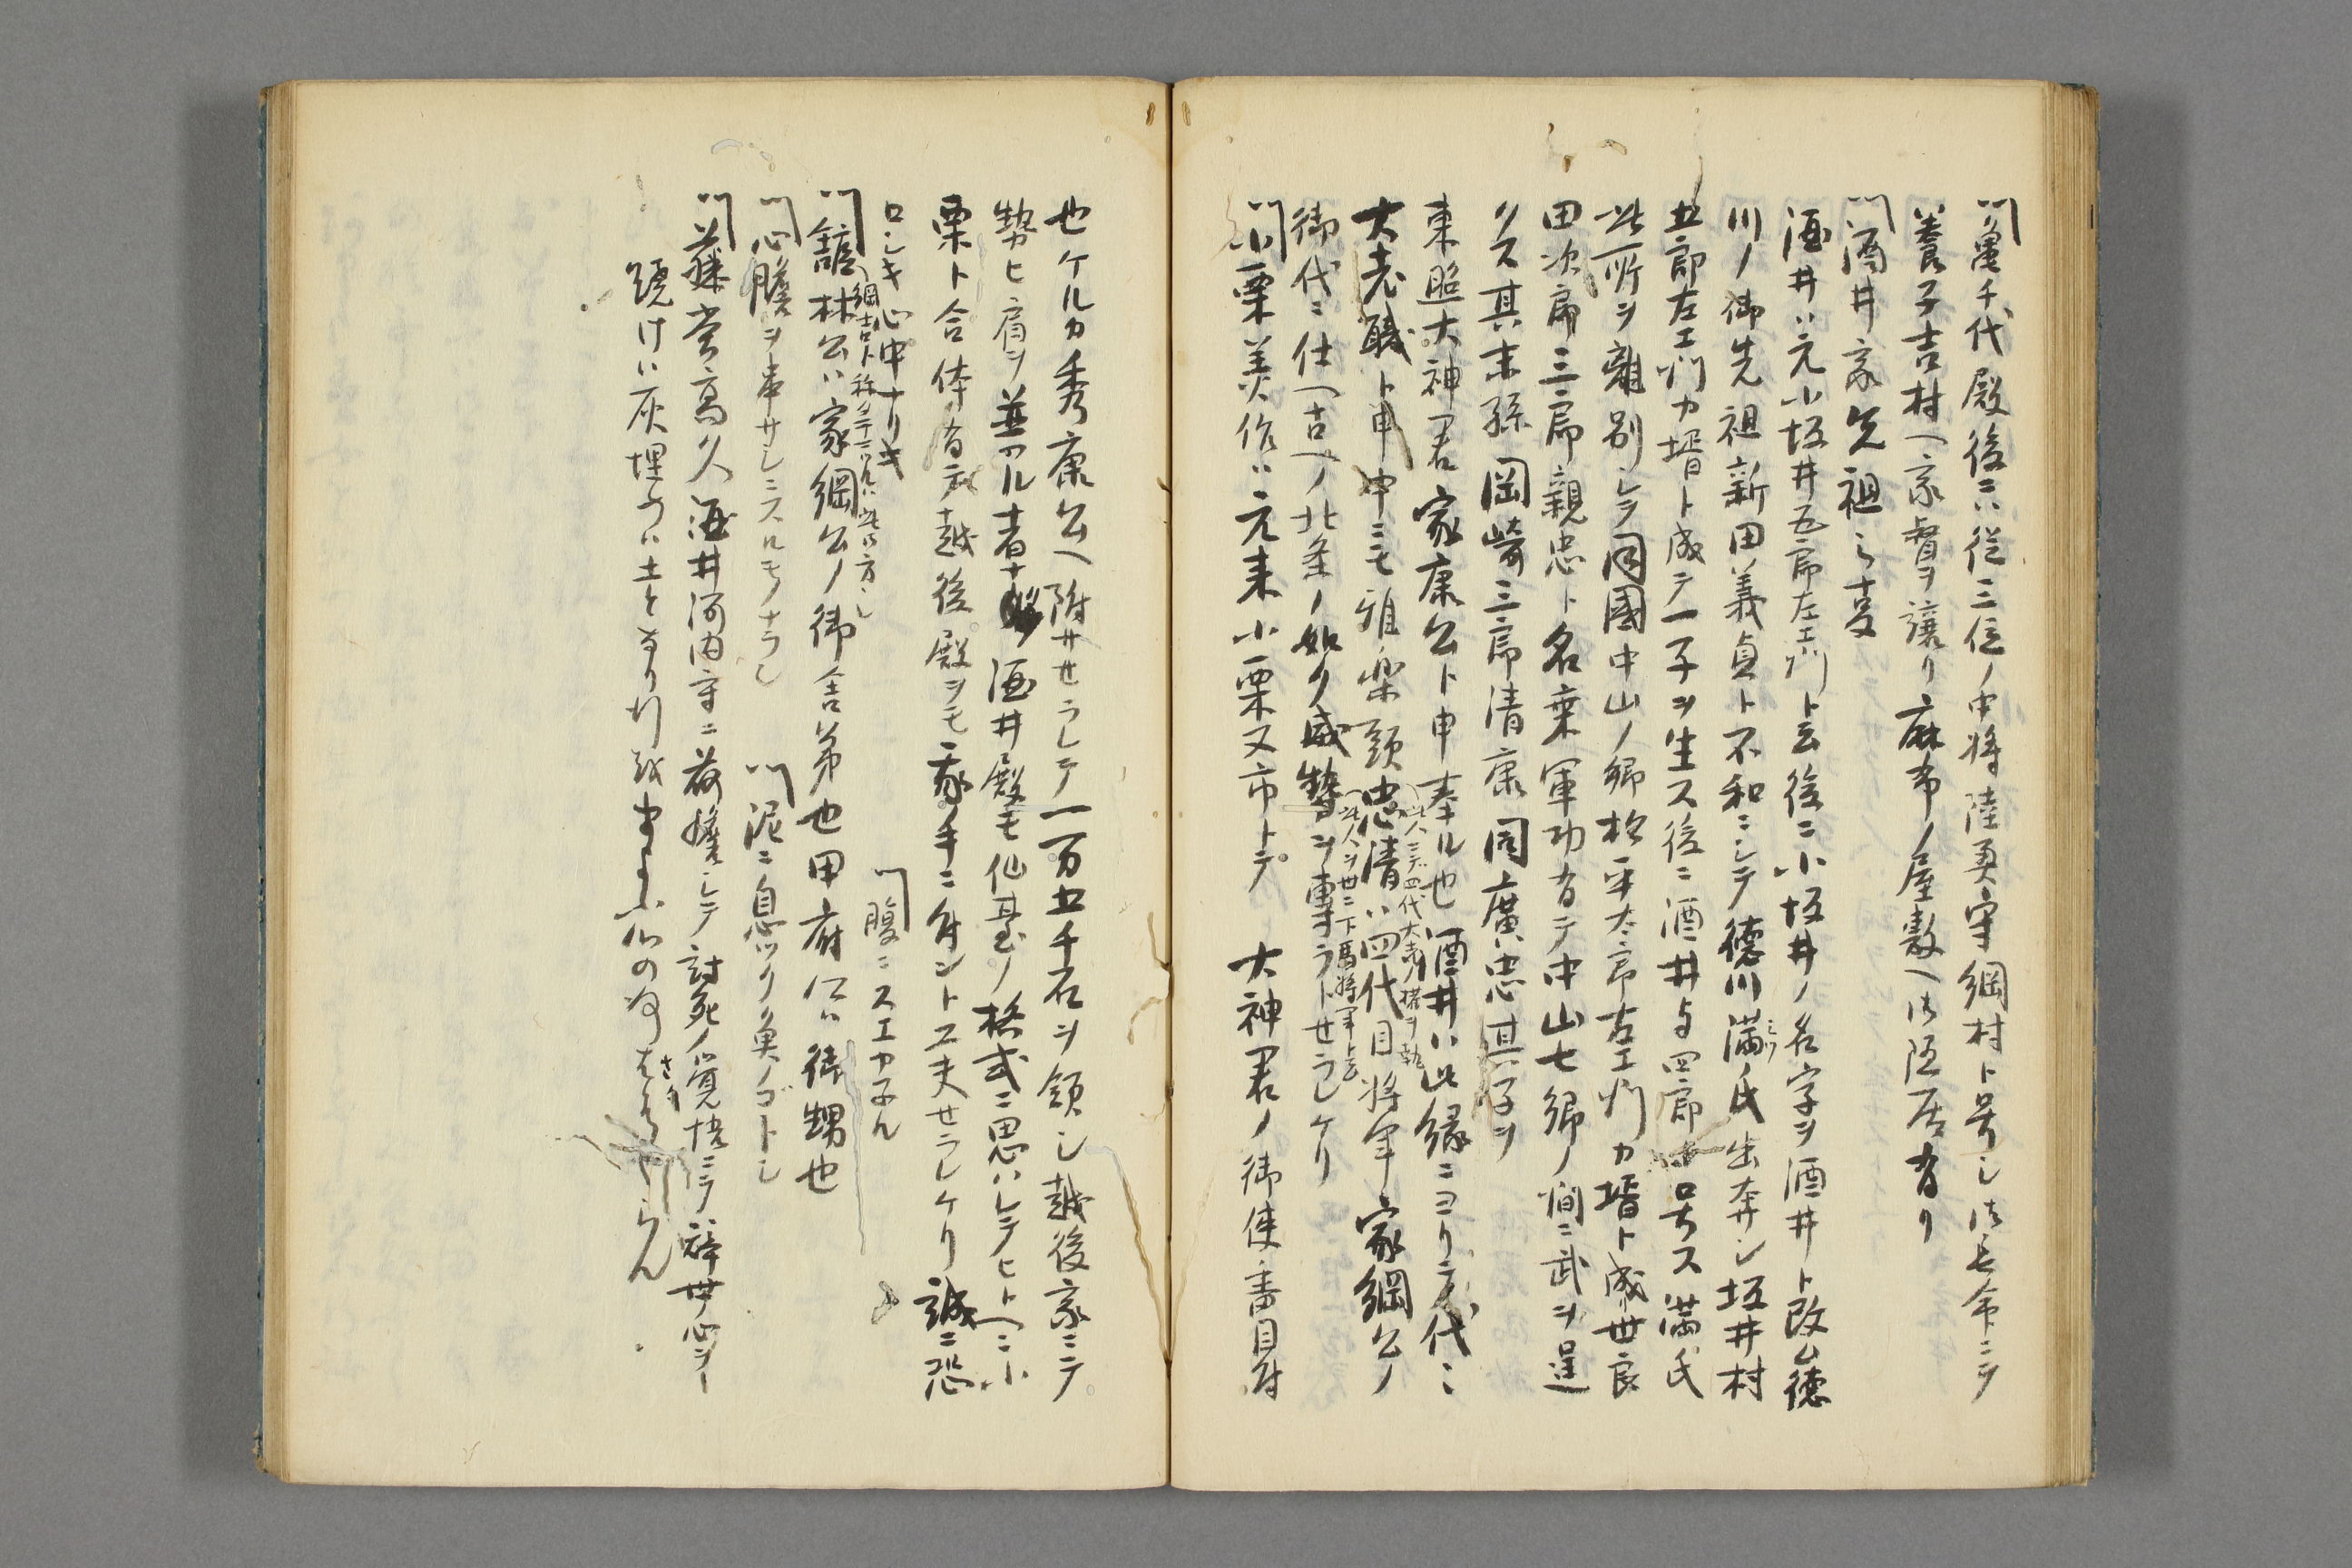 亀千代殿後ニハ従三位ノ中将陸奥守綱村ト号シ御長命ニテ
養子吉村ヘ家督ヲ譲リ麻布ノ屋敷ヘ御隠居有リ
酒井家先祖之事
酒井ハ元小坂井五郎左エ門ト云後ニ小坂井ノ名字ヲ酒井ト改ム徳
川ノ御先祖新田義貞ト不和ニシテ徳川満氏出奔シ坂井村
五郎左エ門カ壻ト成テ一子ヲ生ス後ニ酒井与四郎ト号ス満氏
此所ヲ離別シテ同國中山ノ郷松平太郎左エ門カ壻ト成世良
田次郎三郎親忠ト名乗軍功有テ中山七郷ノ間ニ武ヲ逞
クス其末孫岡崎三郎清康同廣忠其子ヲ
東照大神君家康公ト申奉ル也酒井ハ此縁ニヨリ代々
大老職ト申中ニモ雅楽頭忠清ハ四代目将軍家綱公ノ
此人ニテ四代大老ノ権ヲ執
此人ヲ世ニ下馬将軍ト云
御代ニ仕ヘ古ヘノ北条ノ如ク威勢ヲ専ラトセラレケリ
小栗美作ハ元来小栗又市トテ 大神君ノ御使番目付
也ケルカ秀康公ヘ附サセラレテ一万五千石ヲ領シ越後家ニテ
勢ヒ肩ヲ並フル者ナク酒井殿モ仙臺ノ格式ニ思ハレテヒトヘニ小
栗ト合体有テ越後殿ヲモ我手ニ付ント工夫セラレケリ誠ニ恐
ロシキ心中ナリキ
腹ニスエカネん
舘林公ハ家綱公ノ御舎弟也甲府公ハ御甥也
心膽ヲ串サシニスルモノナラし
泥ニ息ツク魚ノゴトし
藤堂高久酒井河内守ニ荷擔シテ討死ノ覚悟ニテ辞世ノ心ヲ
焼けハ灰埋めハ土となり